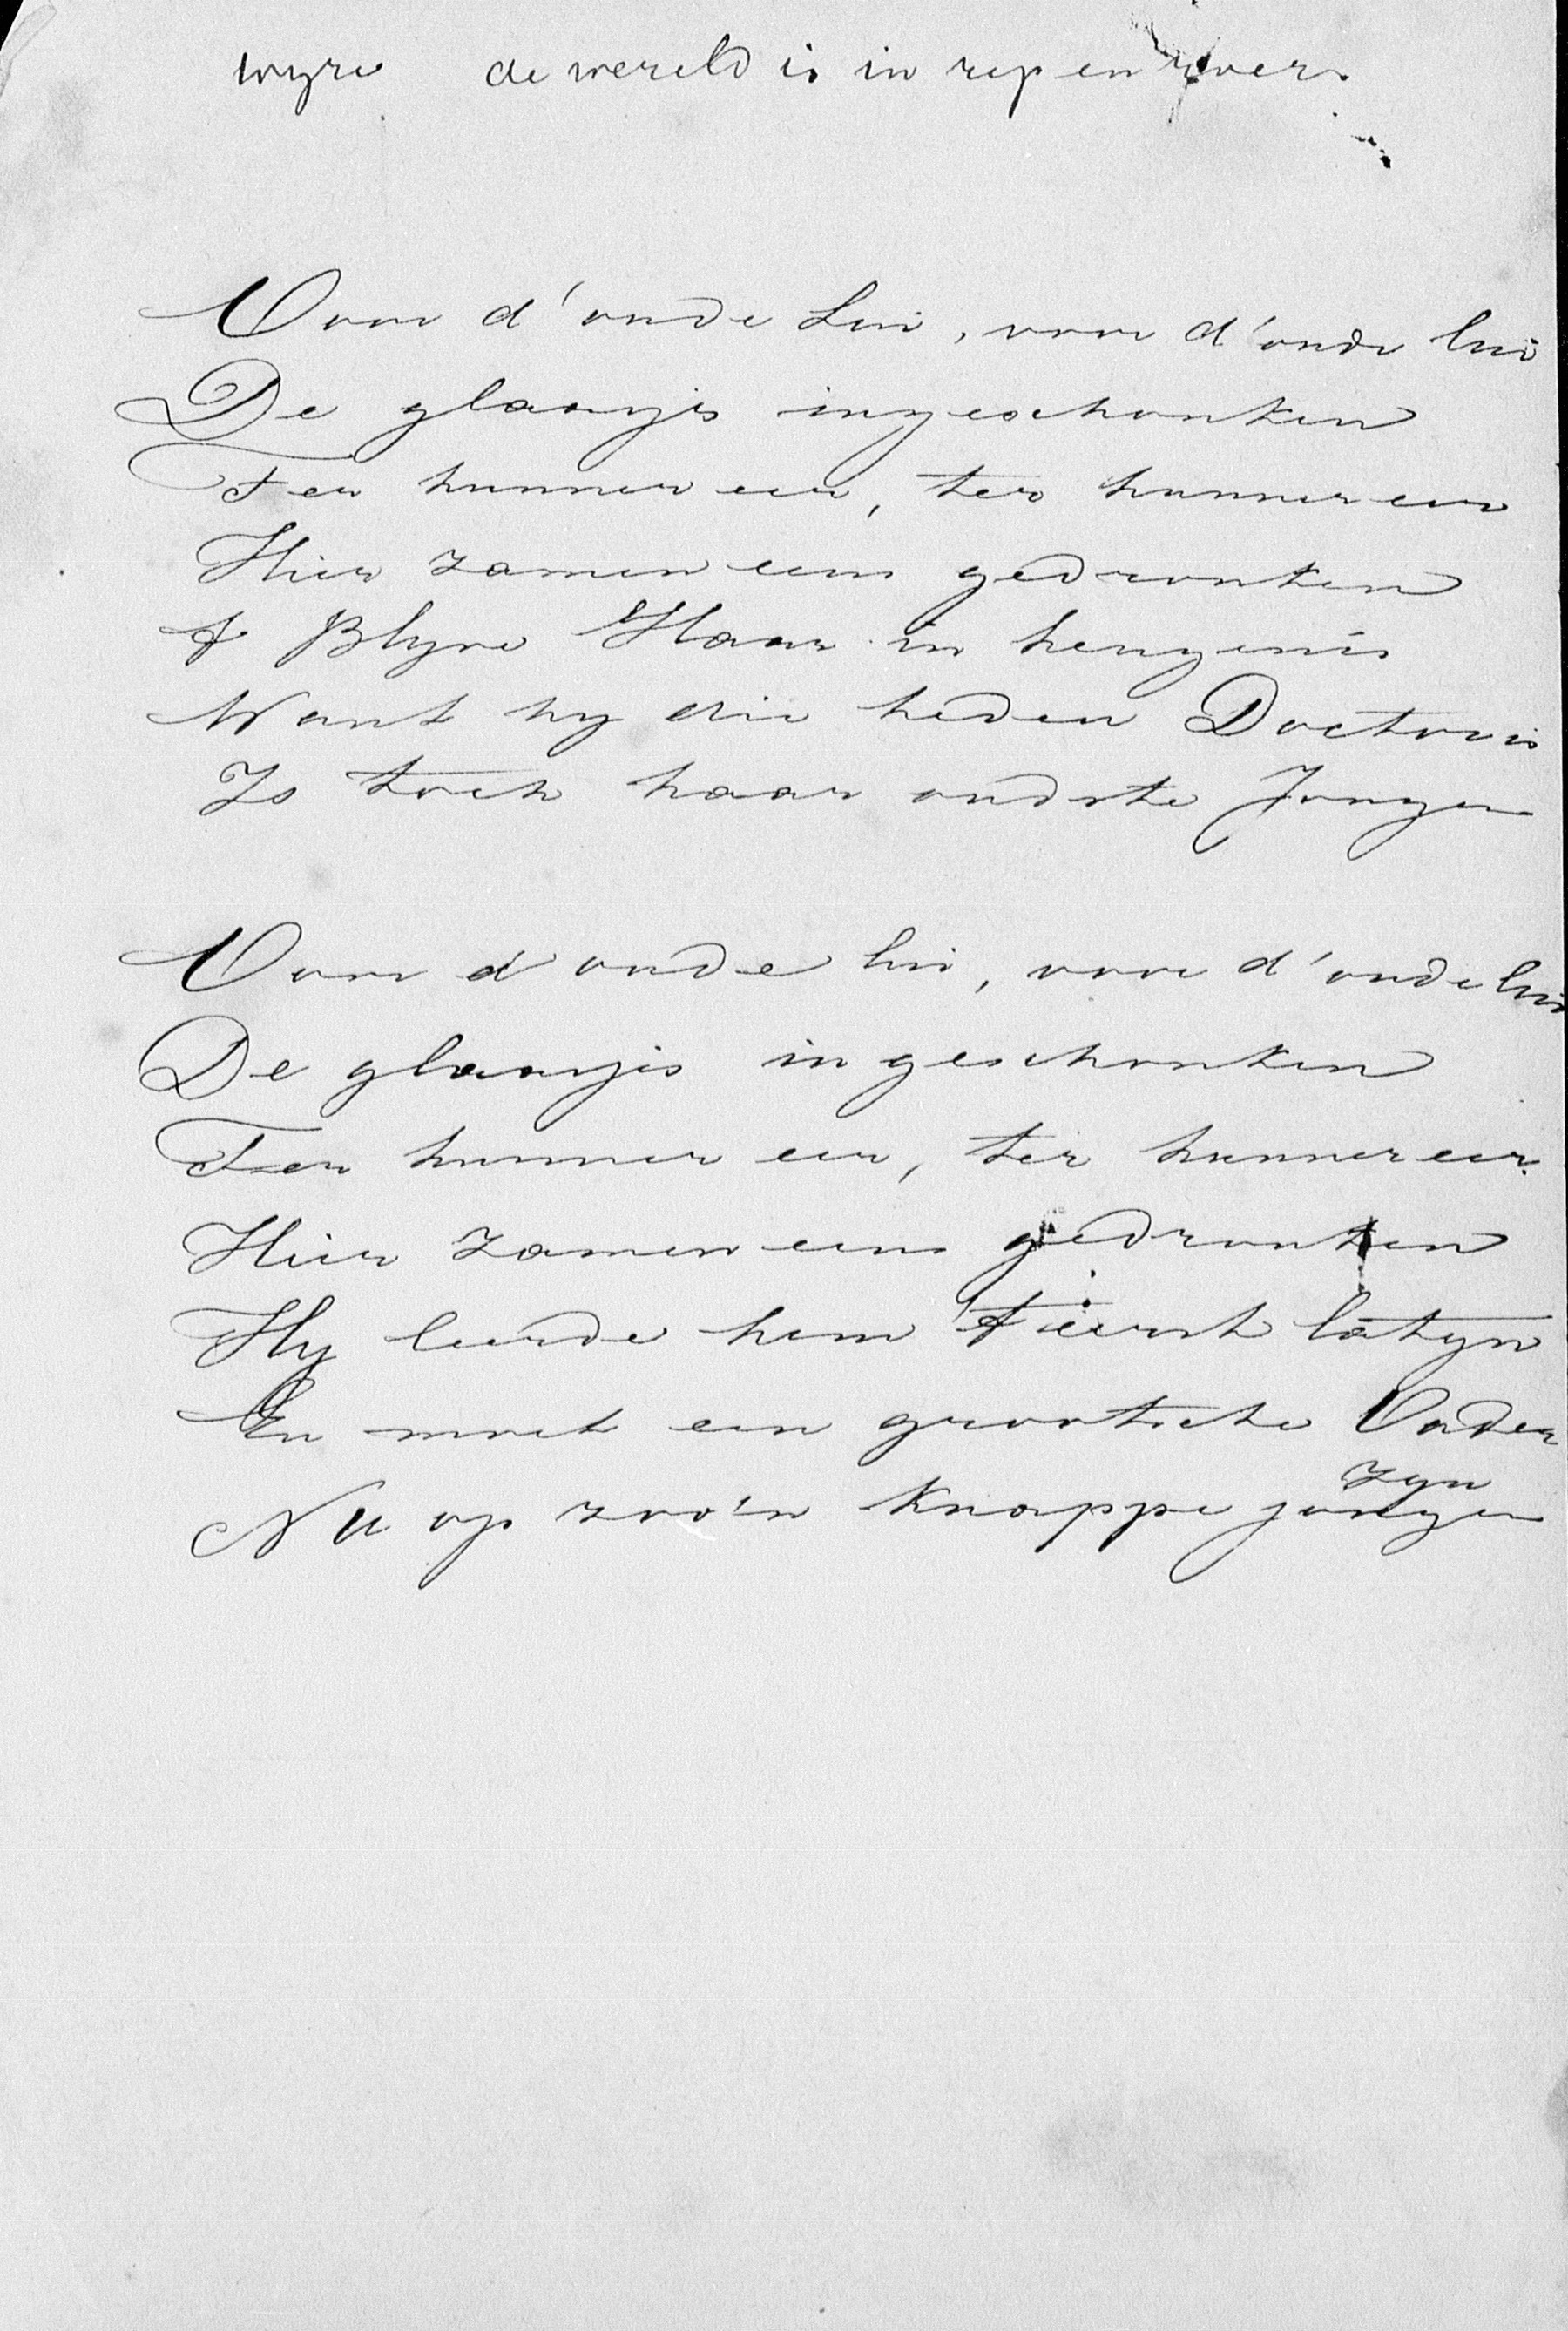 wyze de wereld is in rep en roer
Voor d'oude Lui, voor d'oude lui
De glaasjes ingeschonken
Ter hunner eer, ter hunner eer
Hier zamen eens gedronken
't Blyve Haar in heugenis
Want hy die heden Doctor is
Is toch haar oudste Jongen
Voor d'oude lui, voor d'oude lui
De glaasjes ingeschonken
Ter hunner eer, ter hunner eer.
Hier zamen eens gedronken
Hy leerde hem 't eerst latyn
En moet een grootsche Vader
zyn
Nu op zoo'n knappe jongen